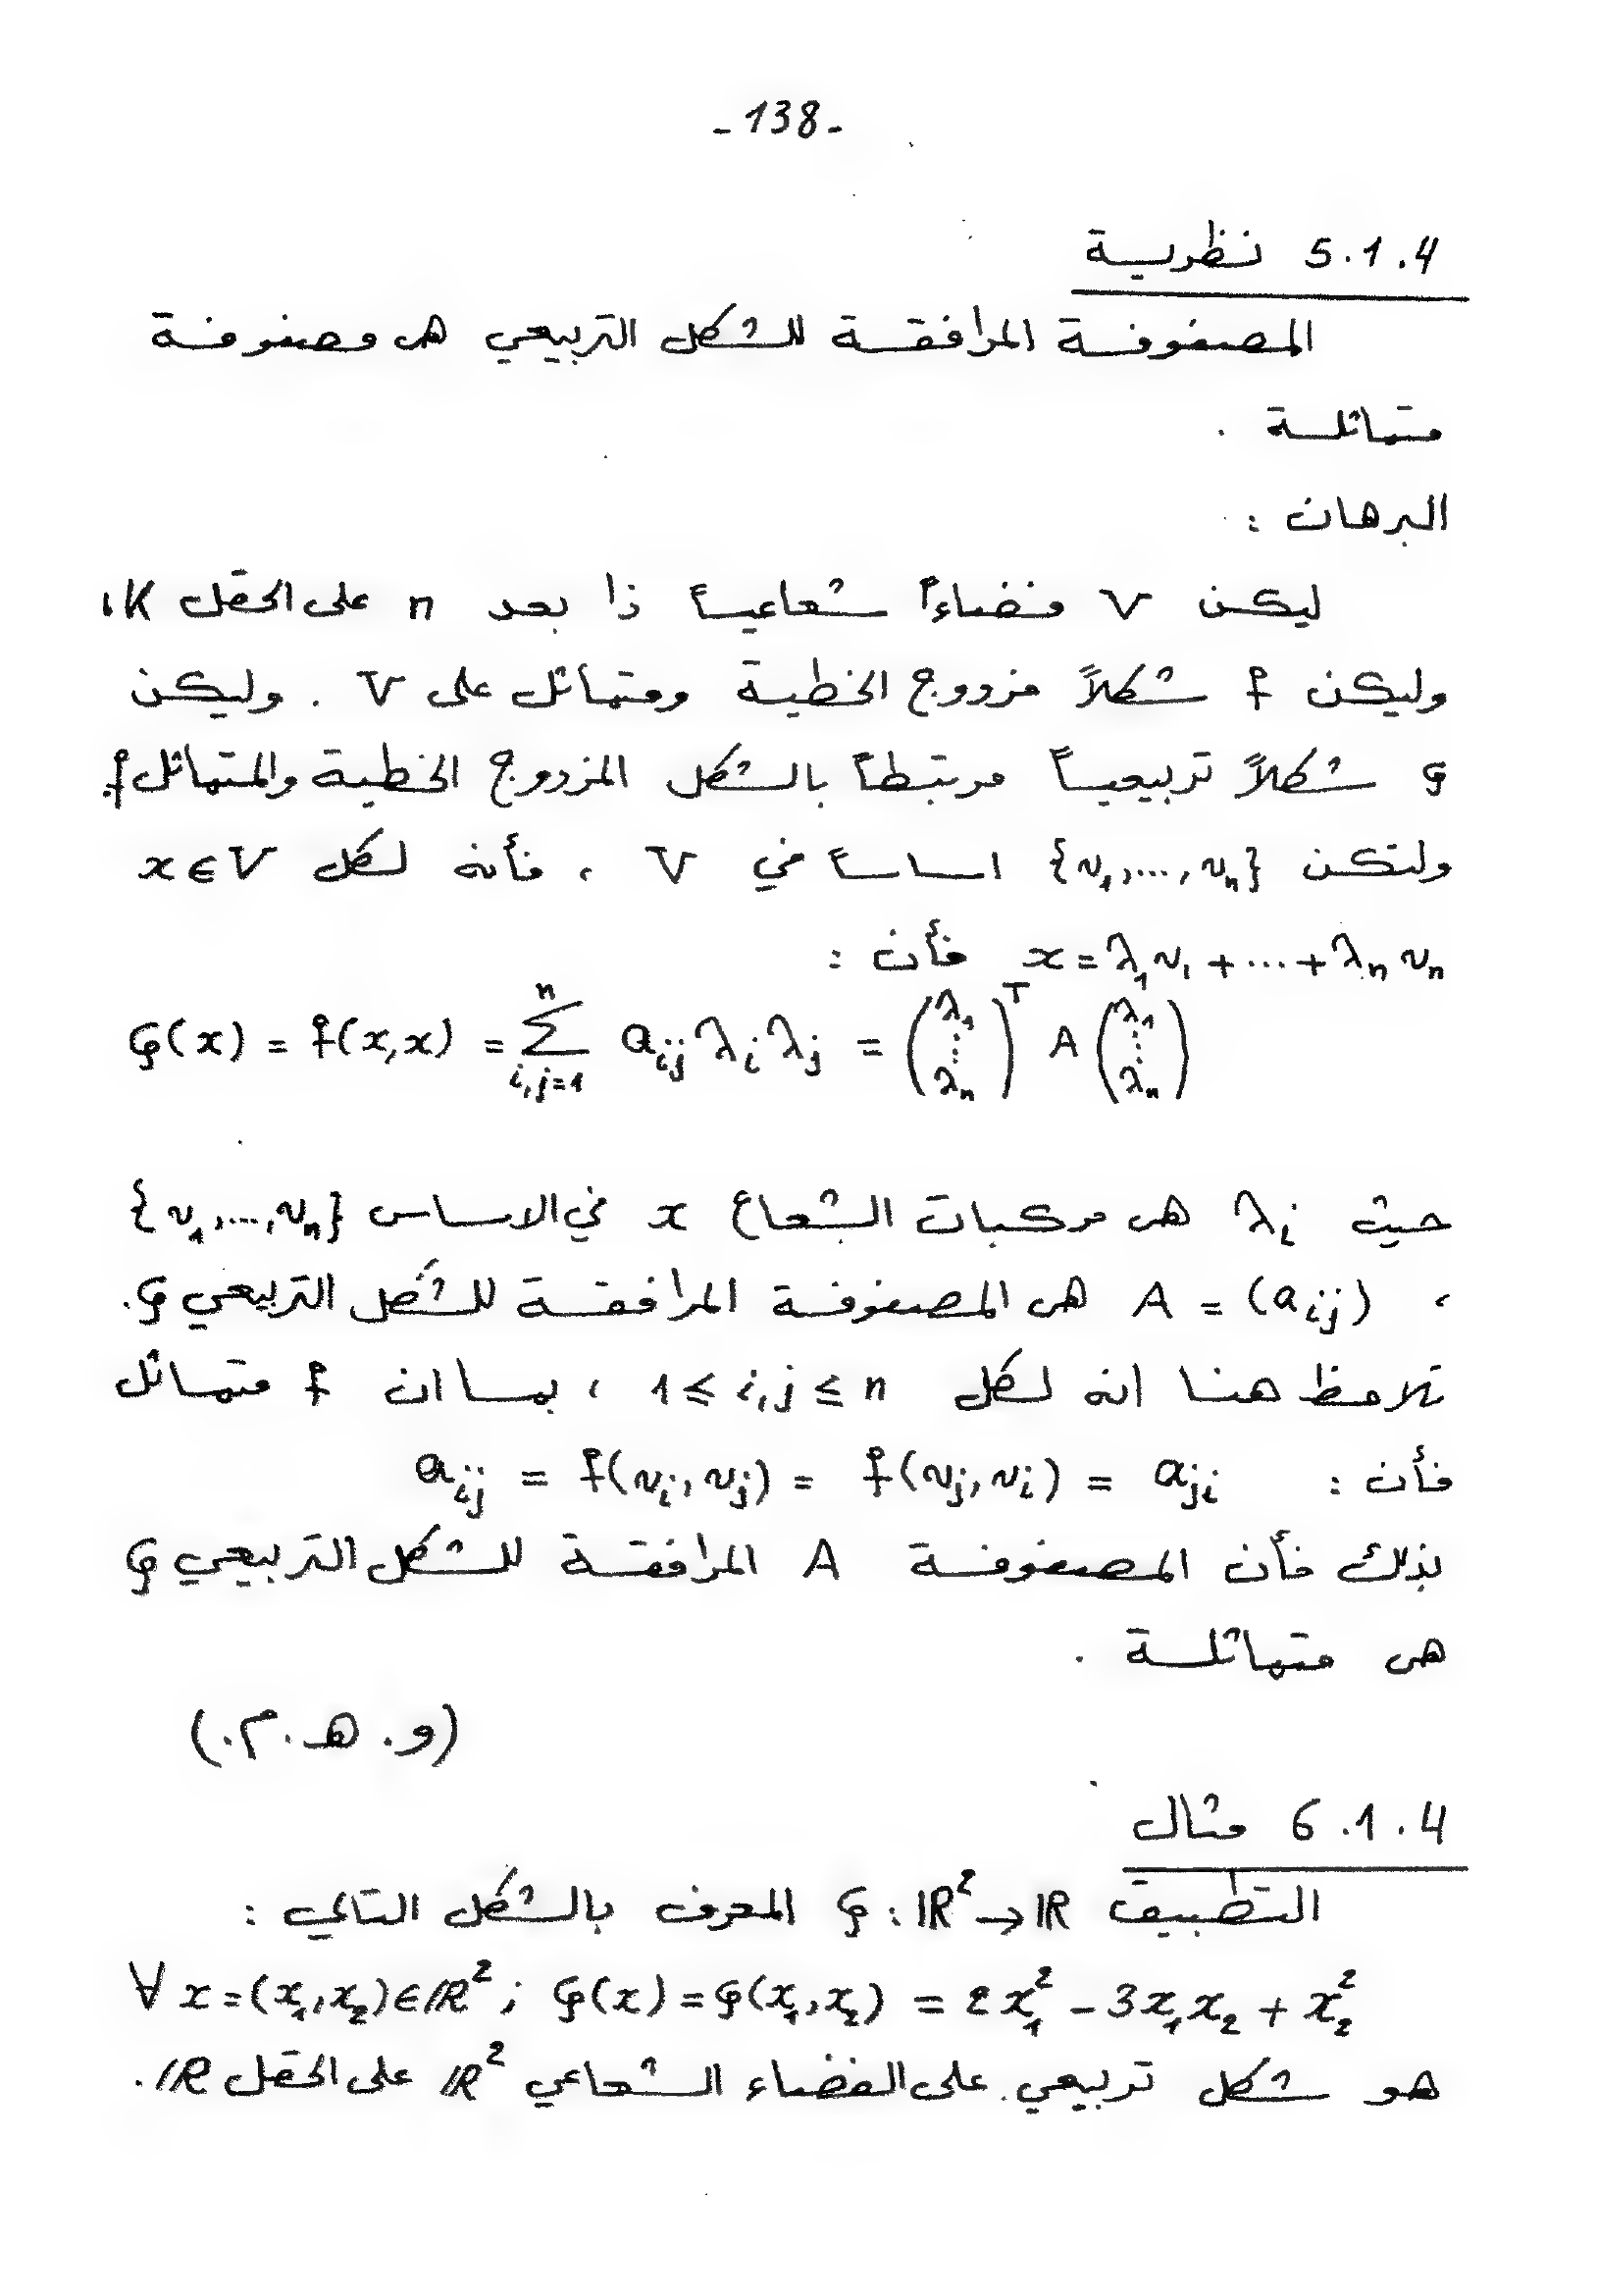 - 138 -
5.1.4 نظرية
المصفوفة المرافقة للشكل التربيعي هي مصفوفة
متماثلة .
البرهان :
ليكن V فضاءاً شعاعياً ذا بعد n على الحقل K ،
وليكن f شكلاً مزدوج الخطية ومتماثل على V . وليكن
φ شكلاً تربيعياً مرتبطاً بالشكل المزدوج الخطية والمتماثل f.
ولتكن {v₁,...,vₙ} اساساً في V ، فأنه لكل x ∈ V
x = λ₁v₁ + ... + λₙvₙ فأن :
φ(x) = f(x,x) = ∑_{i,j=1}^{n} a_{ij} λ_i λ_j = (λ₁ ⋮ λₙ)^T A (λ₁ ⋮ λₙ)
حيث λ_i هي مركبات الشعاع x في الاساس {v₁,...,vₙ}
، A = (a_{ij}) هي المصفوفة المرافقة للشكل التربيعي φ.
نلاحظ هنا انه لكل 1 ≤ i,j ≤ n ، بما ان f متماثل
فأن : a_{ij} = f(v_i, v_j) = f(v_j, v_i) = a_{ji}
بذلك فأن المصفوفة A المرافقة للشكل التربيعي φ
هي متماثلة .
(و. هـ. م.)
6.1.4 مثال
التطبيق φ : ℝ² → ℝ المعرف بالشكل التالي :
∀ x = (x₁, x₂) ∈ ℝ² ; φ(x) = φ(x₁, x₂) = 2x₁² - 3x₁x₂ + x₂²
هو شكل تربيعي على الفضاء الشعاعي ℝ² على الحقل ℝ.